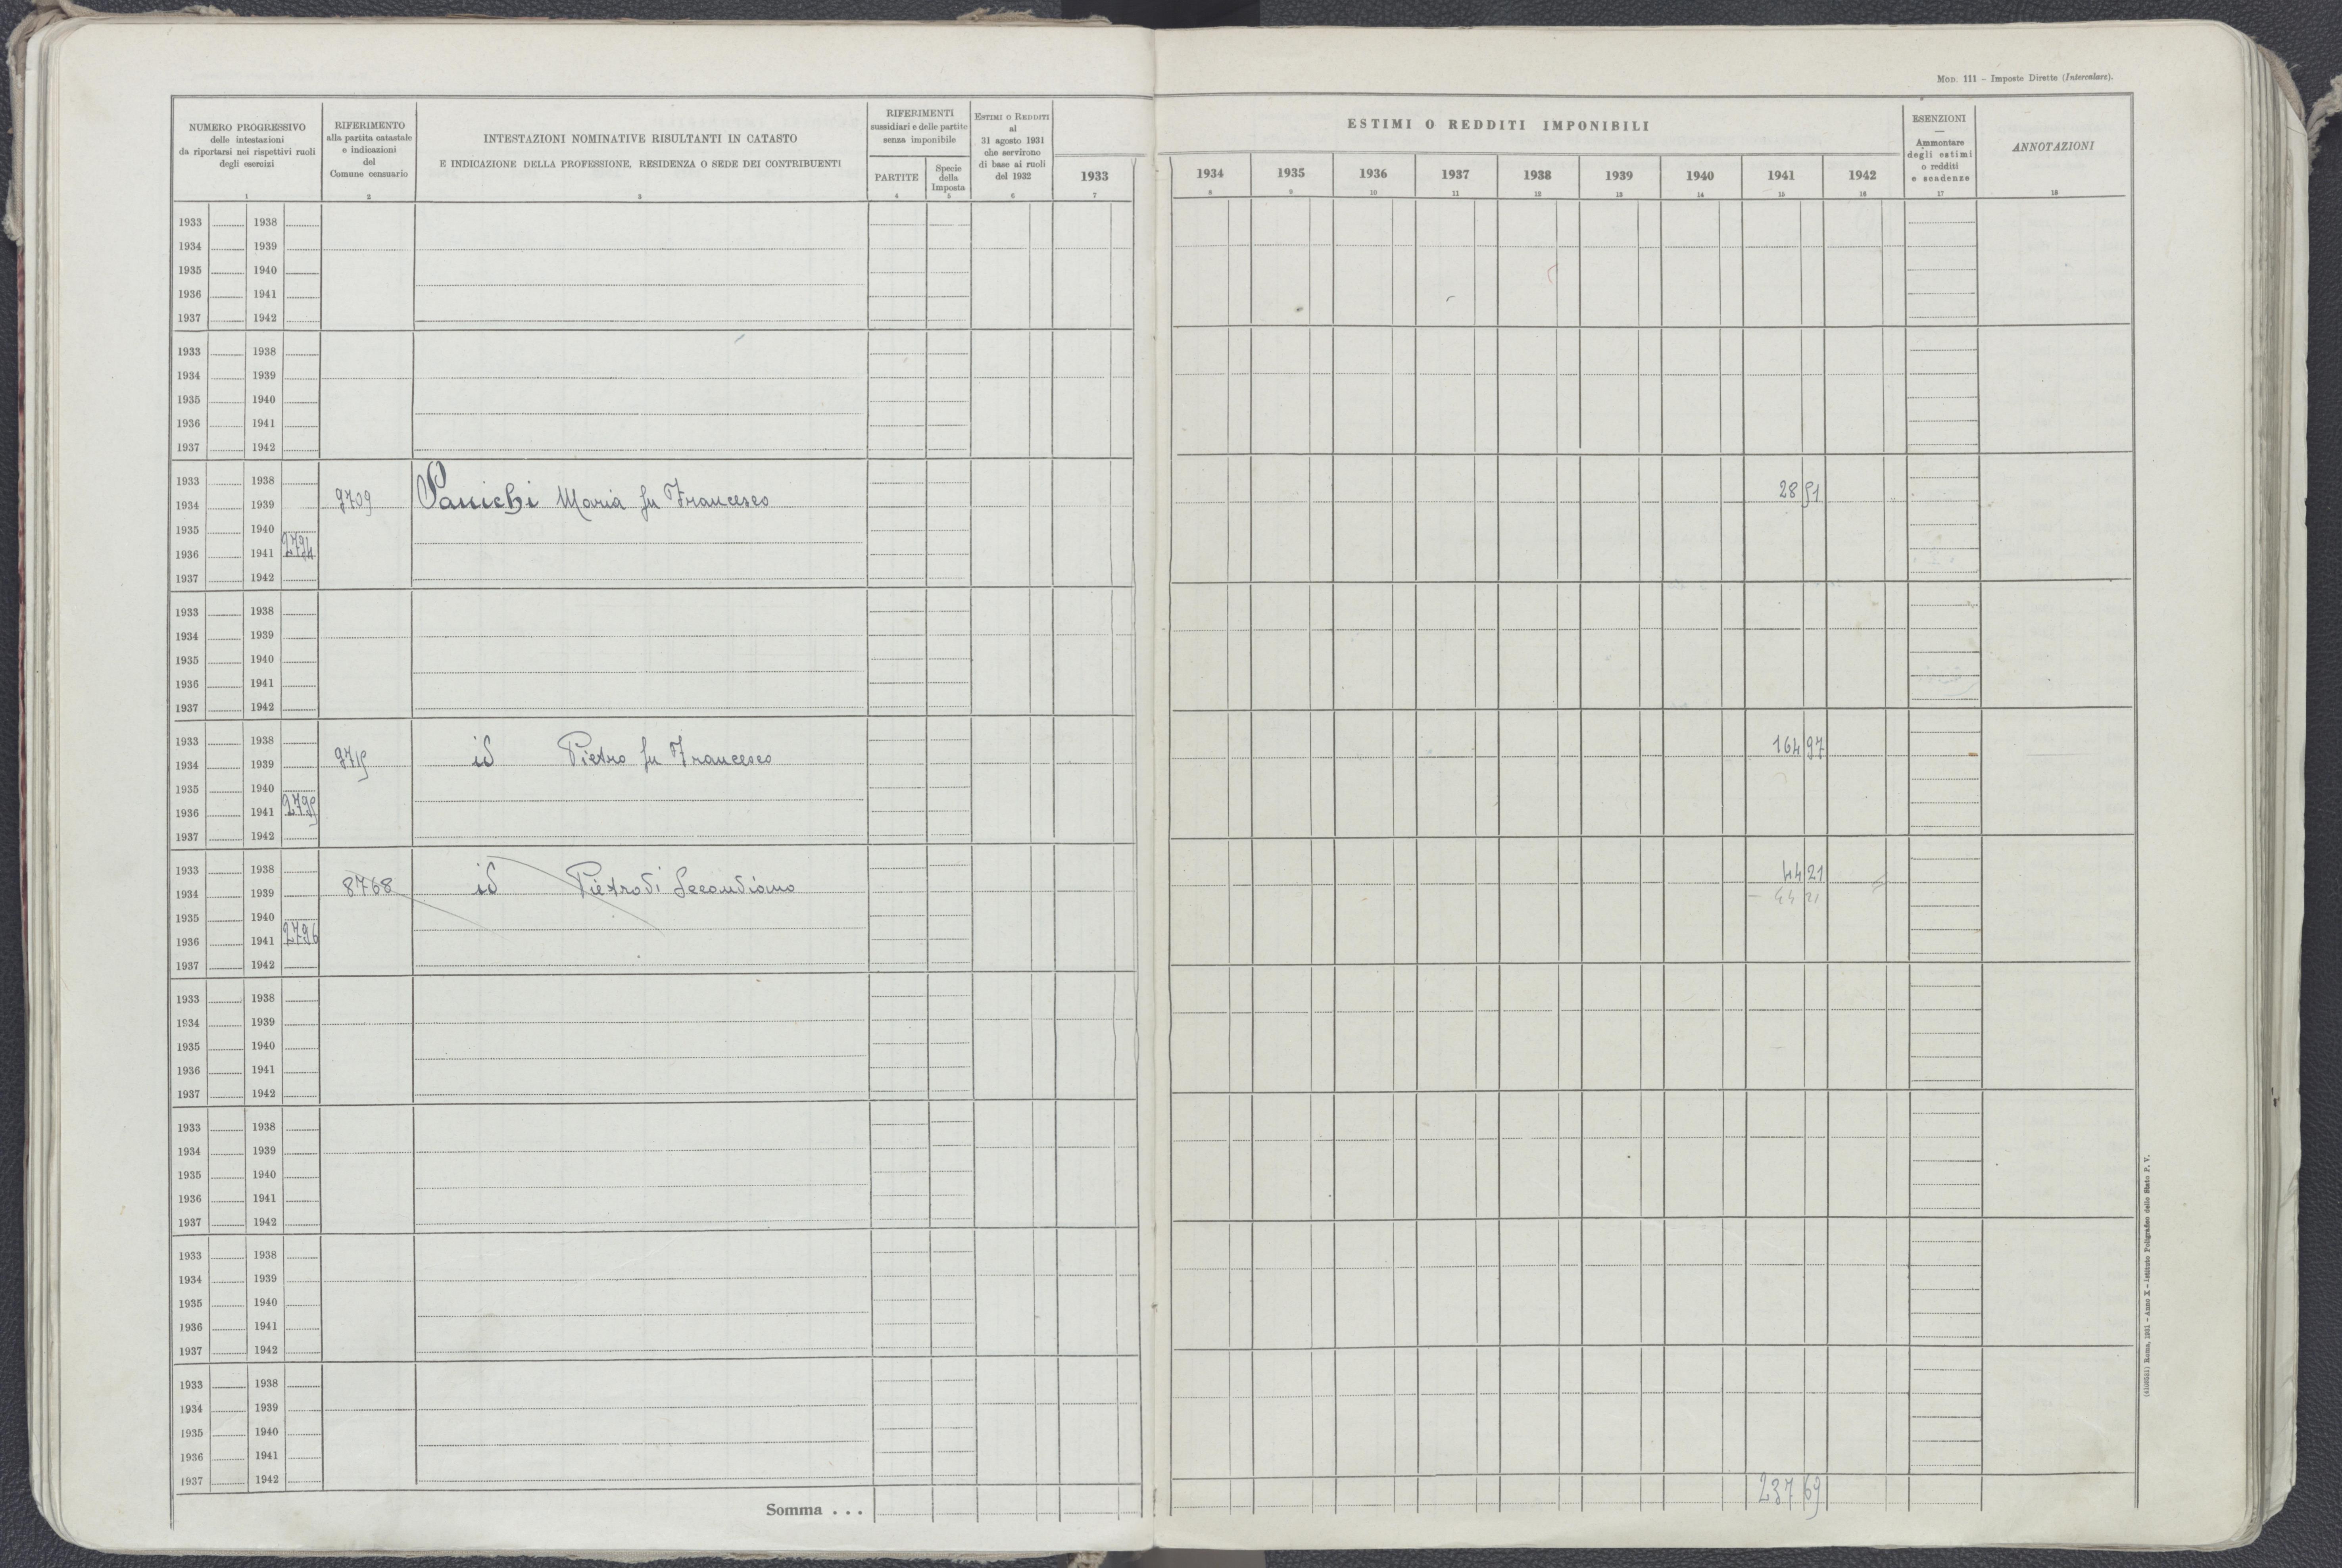 Mod. 111 – Imposte Dirette (Intercalare).
NUMERO PROGRESSIVO
delle intestazioni
da riportarsi nei rispettivi ruoli
degli esercizi
1
RIFERIMENTO
alla partita catastale
e indicazioni
del
Comune censuario
2
INTESTAZIONI NOMINATIVE RISULTANTI IN CATASTO
E INDICAZIONE DELLA PROFESSIONE, RESIDENZA O SEDE DEI CONTRIBUENTI
3
RIFERIMENTI
sussidiari e delle partite
senza imponibile
PARTITE
4
Specie
della
Imposta
5
ESTIMI O REDDITI
al
31 agosto 1931
che servirono
di base ai ruoli
del 1932
6
ESTIMI O REDDITI IMPONIBILI
1933 1934 1935 1936 1937 1938 1939 1940 1941 1942
7 8 9 10 11 12 13 14 15 16
ESENZIONI
—
Ammontare
degli estimi
o redditi
e scadenze
17
ANNOTAZIONI
18
1933 1938
1934 1939
1935 1940
1936 1941
1937 1942
1933 1938
1934 1939
1935 1940
1936 1941
1937 1942
1933 1938
1934 1939 9709 Panichi Maria fu Francesco 28 51
1935 1940
1936 1941 2794
1937 1942
1933 1938
1934 1939
1935 1940
1936 1941
1937 1942
1933 1938
1934 1939 9715 id Pietro fu Francesco 164 97
1935 1940
1936 1941 2795
1937 1942
1933 1938 44 21
1934 1939 8768 id Pietro di Secondiano – 44 21
1935 1940
1936 1941 2796
1937 1942
1933 1938
1934 1939
1935 1940
1936 1941
1937 1942
1933 1938
1934 1939
1935 1940
1936 1941
1937 1942
1933 1938
1934 1939
1935 1940
1936 1941
1937 1942
1933 1938
1934 1939
1935 1940
1936 1941
1937 1942
Somma . . . 237 69
Roma, 1931 – Anno X – Istituto Poligrafico dello Stato P. V.